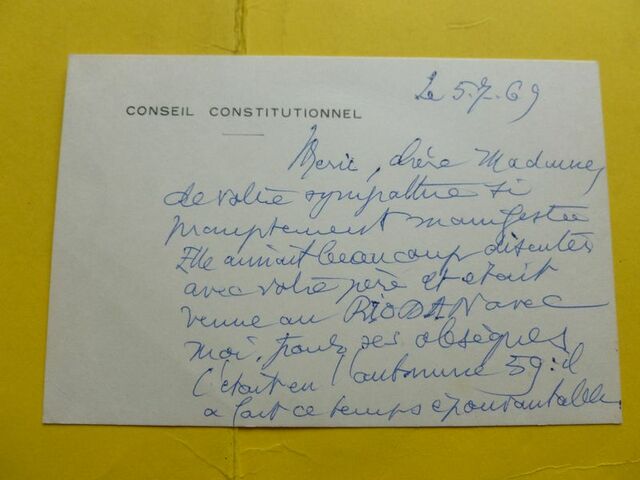 Le 5.7.69
CONSEIL CONSTITUTIONNEL
Merci, chère Madame,
de votre sympathie si
promptement manifestée
Elle aimait beaucoup discuter
avec votre père et était
venue au avec
moi, pour ses obsèques
C'était en l'automne 59: il
a fait ce temps épouvantable.